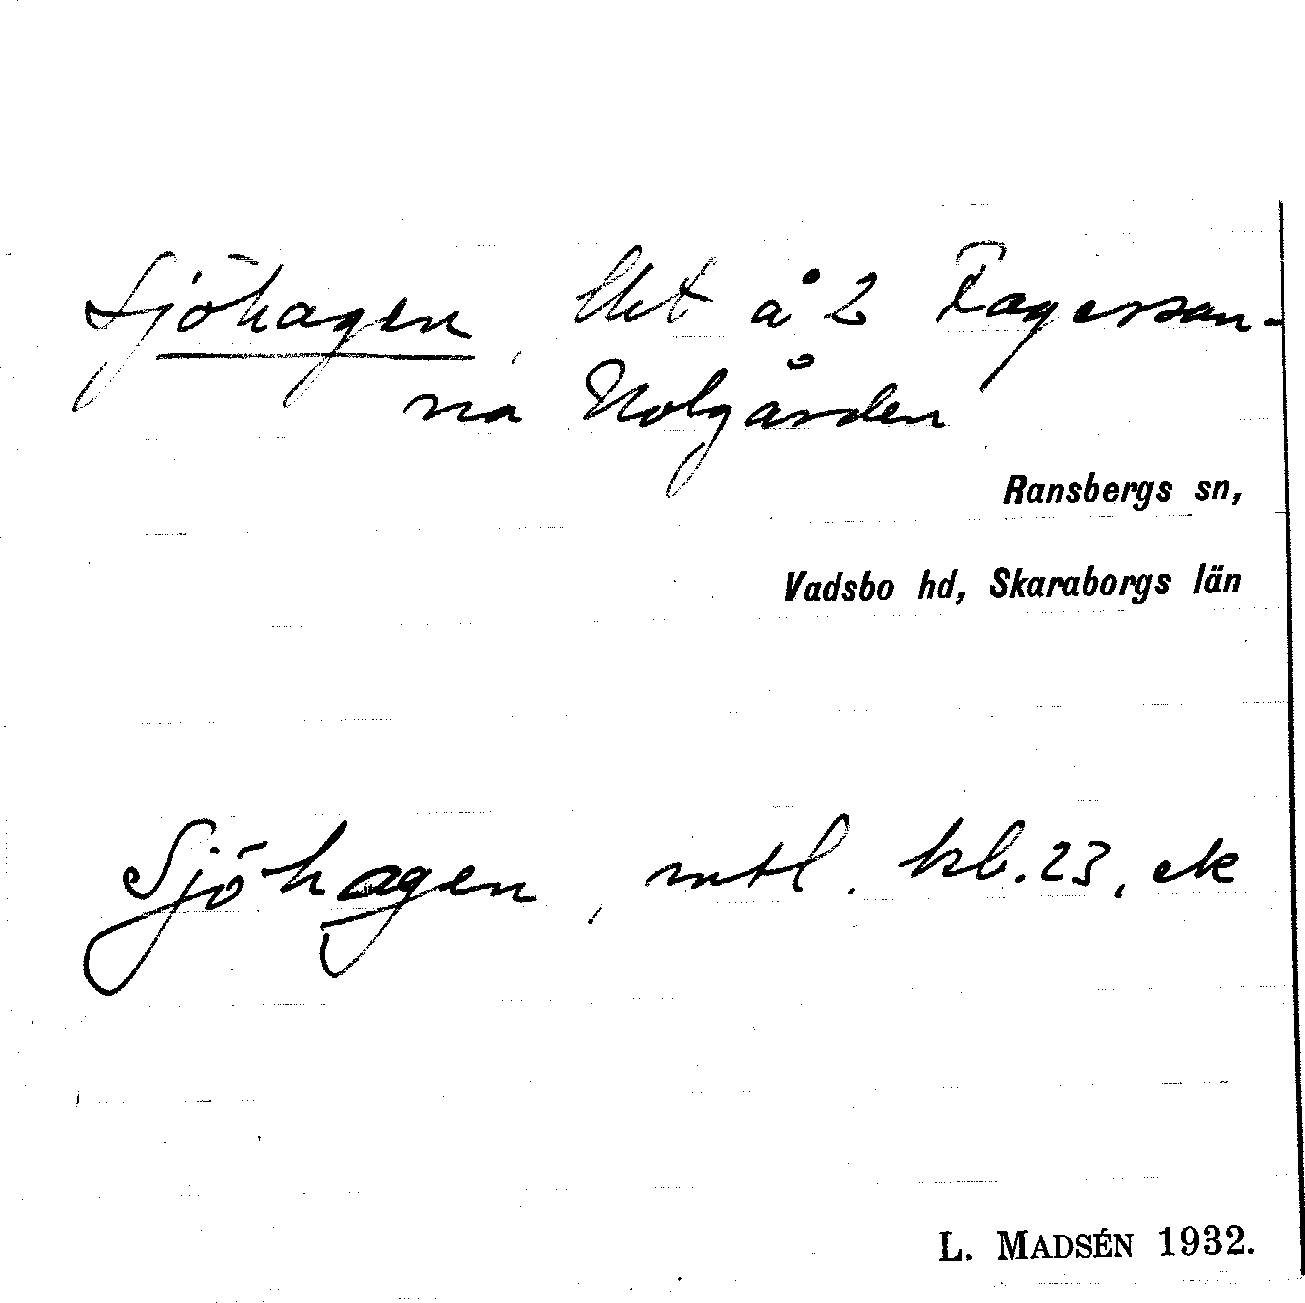 Sjöhagen, lht å 2 Fagersan-
na Nolgården
Ransbergs sn,
Vadsbo hd, Skaraborgs län
Sjöhagen, mtl. kb. 23, ek
L. MADSÉN 1932.